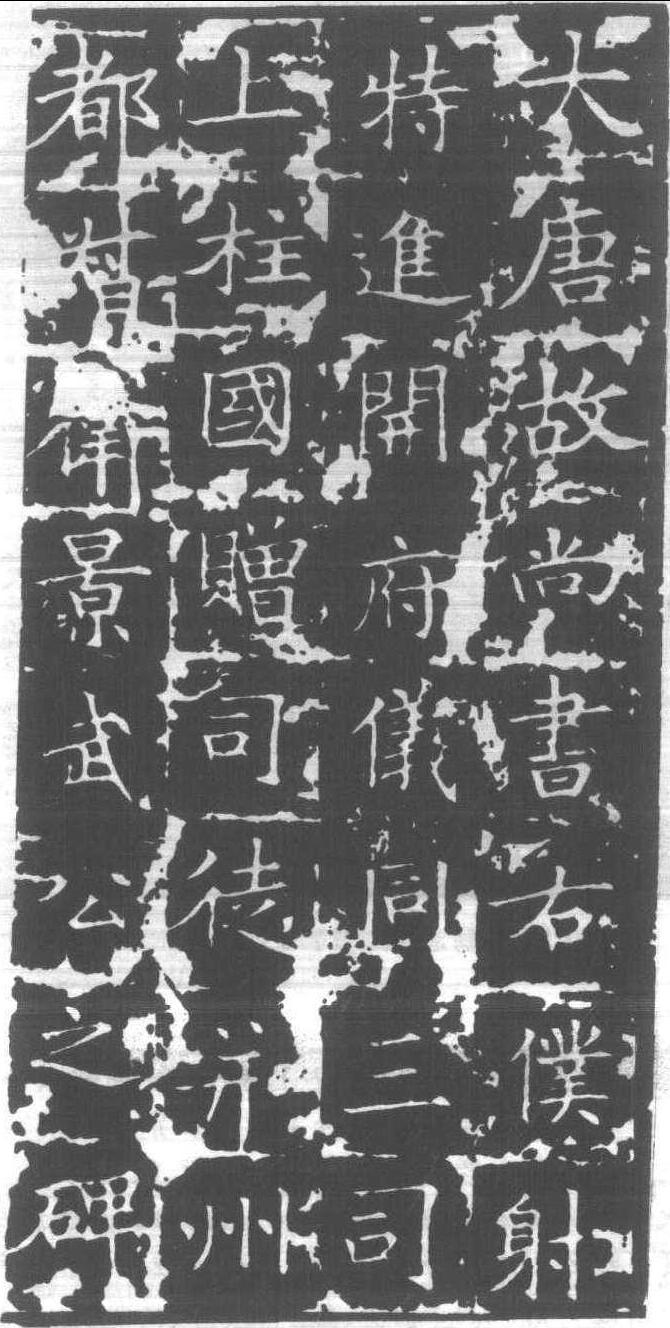 大唐故尚書右僕射
特進開府儀同三司
上柱國贈司徒并州
都督衛景武公之碑